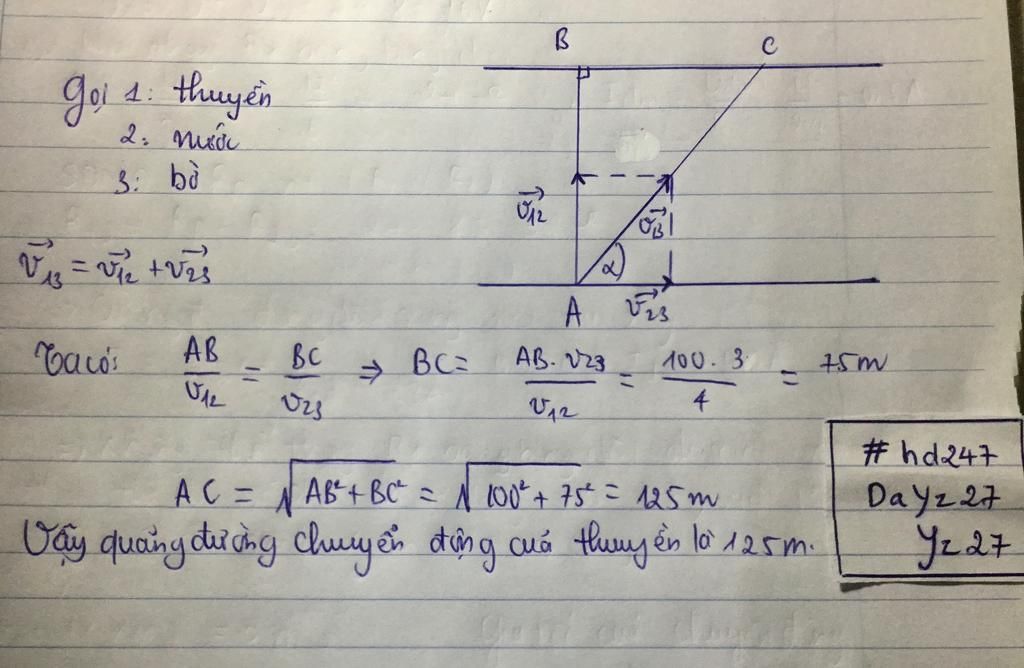 Gọi 1: thuyền
2: nước
3: bờ
B C
v₁₂→ v₁₃→
α
A v₂₃→
v₁₃→ = v₁₂→ + v₂₃→
Ta có: AB/v₁₂ = BC/v₂₃ ⇒ BC = AB.v₂₃/v₁₂ = 100.3/4 = 75m
AC = √(AB² + BC²) = √(100² + 75²) = 125m
Vậy quãng đường chuyển động cuả thuyền là 125m.
# hd247
DaYz27
Yz27